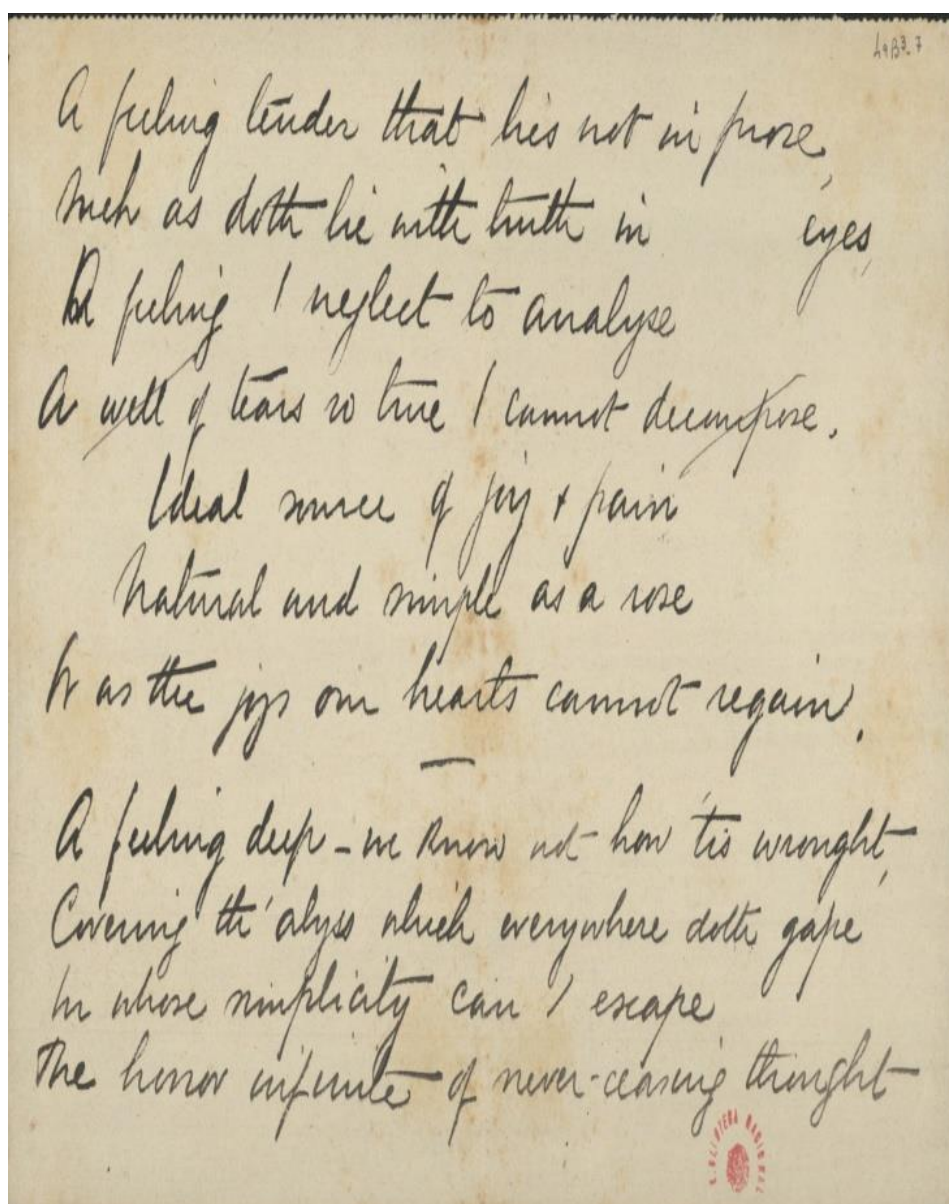 49B3-7
A feeling tender that lies not in prose,
Such as doth lie with truth in eyes,
A feeling I neglect to analyse
A well of tears so true I cannot decompose.
Ideal source of joy & pain
Natural and simple as a rose
Or as the joys our hearts cannot regain.
—
A feeling deep – we know not how 'tis wrought,
Covering th' abyss which everywhere doth gape
In whose simplicity can I escape
The horror infinite of never-ceasing thought
BIBLIOTECA NACIONAL